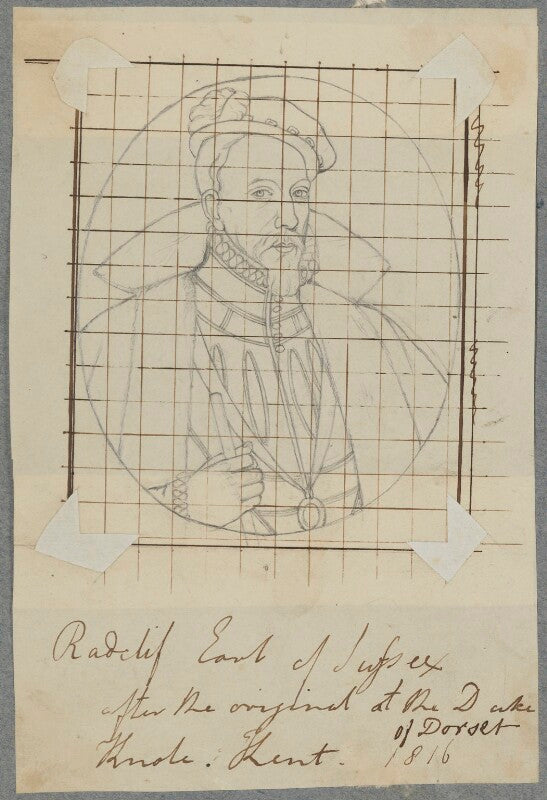 Radclif Earl of Sussex
after the original at the Duke
of Dorset
Knole. Kent. 1816